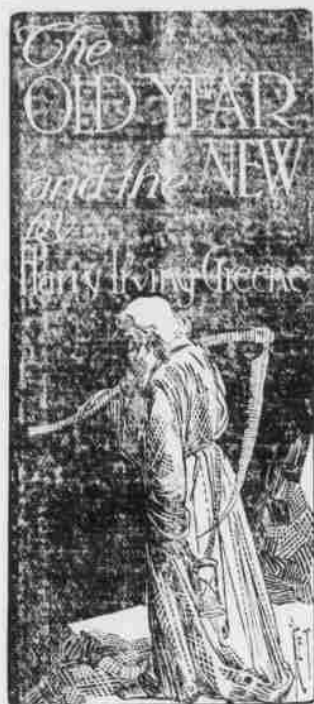 The
OLD YEAR
and the NEW
by
Harry Irving Greene